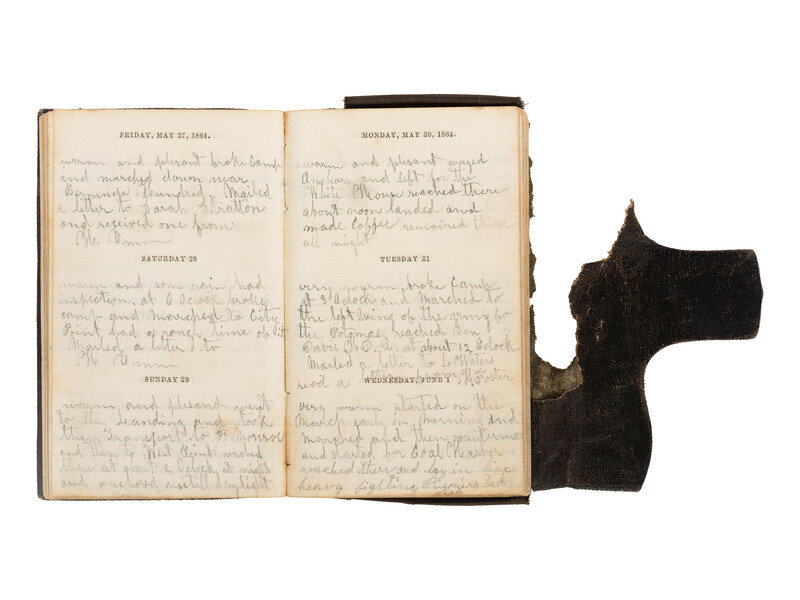 FRIDAY, MAY 27, 1864.
warm and plesant broke Camp
and marched down near
Bermuda Hundred. Mailed
a letter to Sarah Stratton
and received one from
SATURDAY 28
warm and some rain had
inspection at 6 Oclock broke
camp and marched to City
Point had a rough time of it
Mailed a letter to
SUNDAY 29
warm and plesand went
to the Landing and took
the Transport to Ft Monroe
and then to West Point reached
there at about 2 Oclock at night
and anchored untill daylight
MONDAY, MAY 30, 1864.
warm and plesant
Anchor and left for the
White House reached there
about noon landed and
made Coffee remained there
all night
TUESDAY 31
very warm broke Camp
at 3 Oclock and Marched to
the left wing of the army of
the Potomac reached Gen
at about 12 Oclock
Mailed a letter to L. Waters
recd a Foster
WEDNESDAY, JUNE 1
very warm started on the
March early in morning and
marched and then
and started for Coal Harbor
reached there and lay in line
heavy fighting Prisoners take